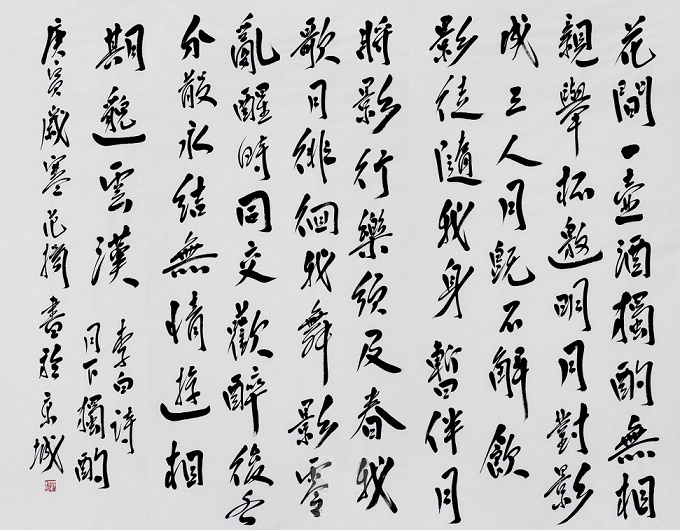 花間一壺酒獨酌無相
親舉杯邀明月對影
成三人月既不解飲
影徒隨我身暫伴月
將影行樂須及春我
歌月徘徊我舞影零
亂醒時同交歡醉後各
分散永結無情遊相
期邈雲漢 李白詩
月下獨酌
庚寅歲寒范書於京城